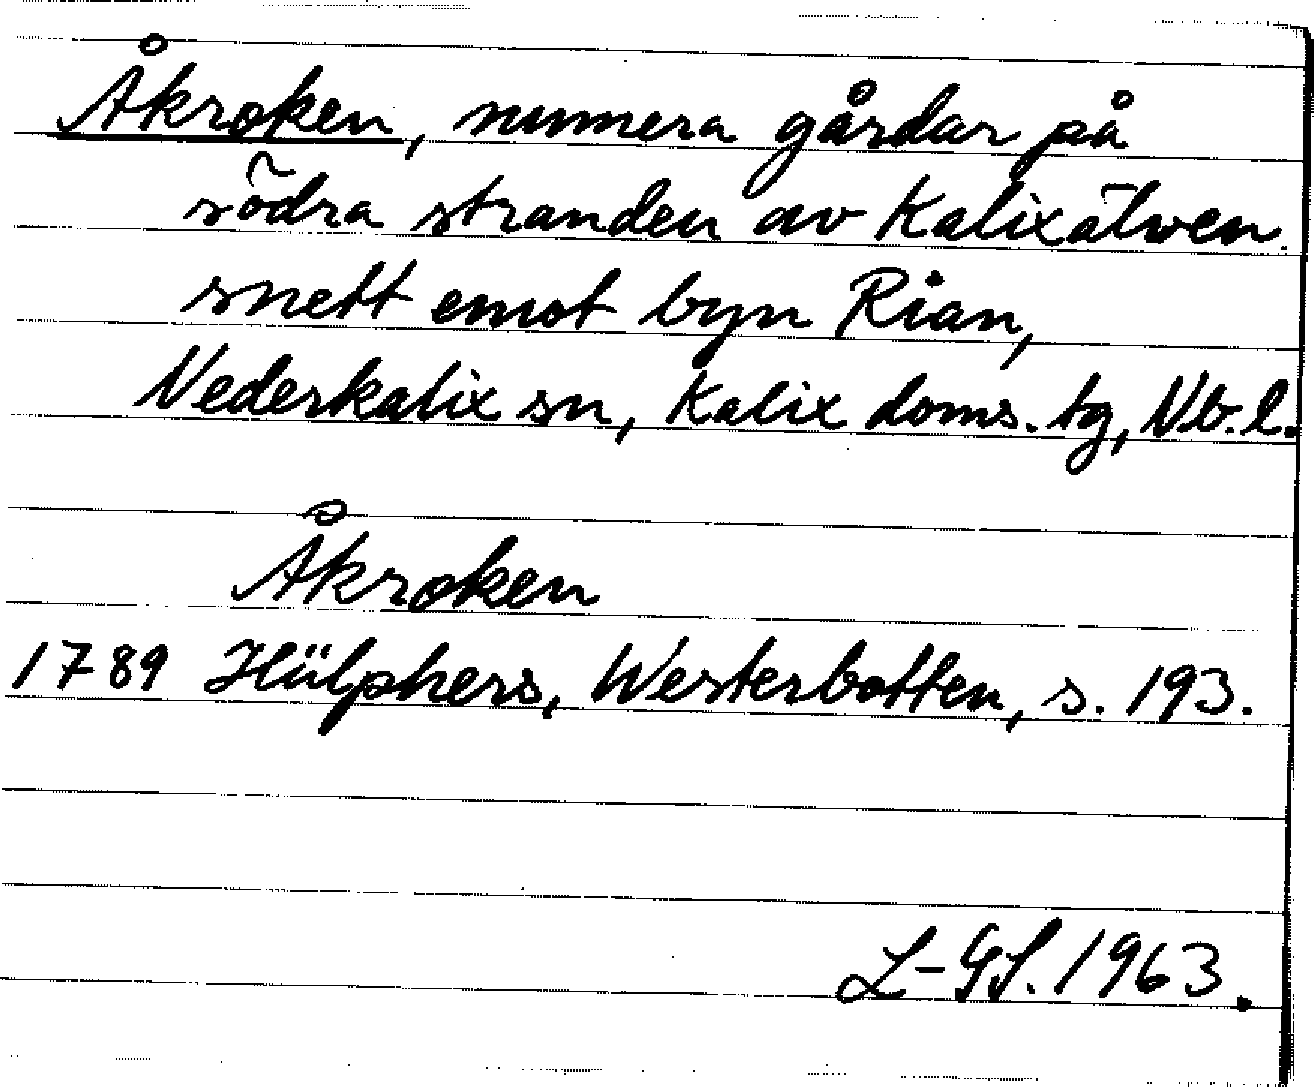 Åkroken, numera gårdar på
södra stranden av Kalixälven
snett emot byn Rian,
Nederkalix sn, Kalix doms. tg, Nb. l.
Åkroken
1789 Hülphers, Westerbotten, s. 193.
L-GS. 1963.